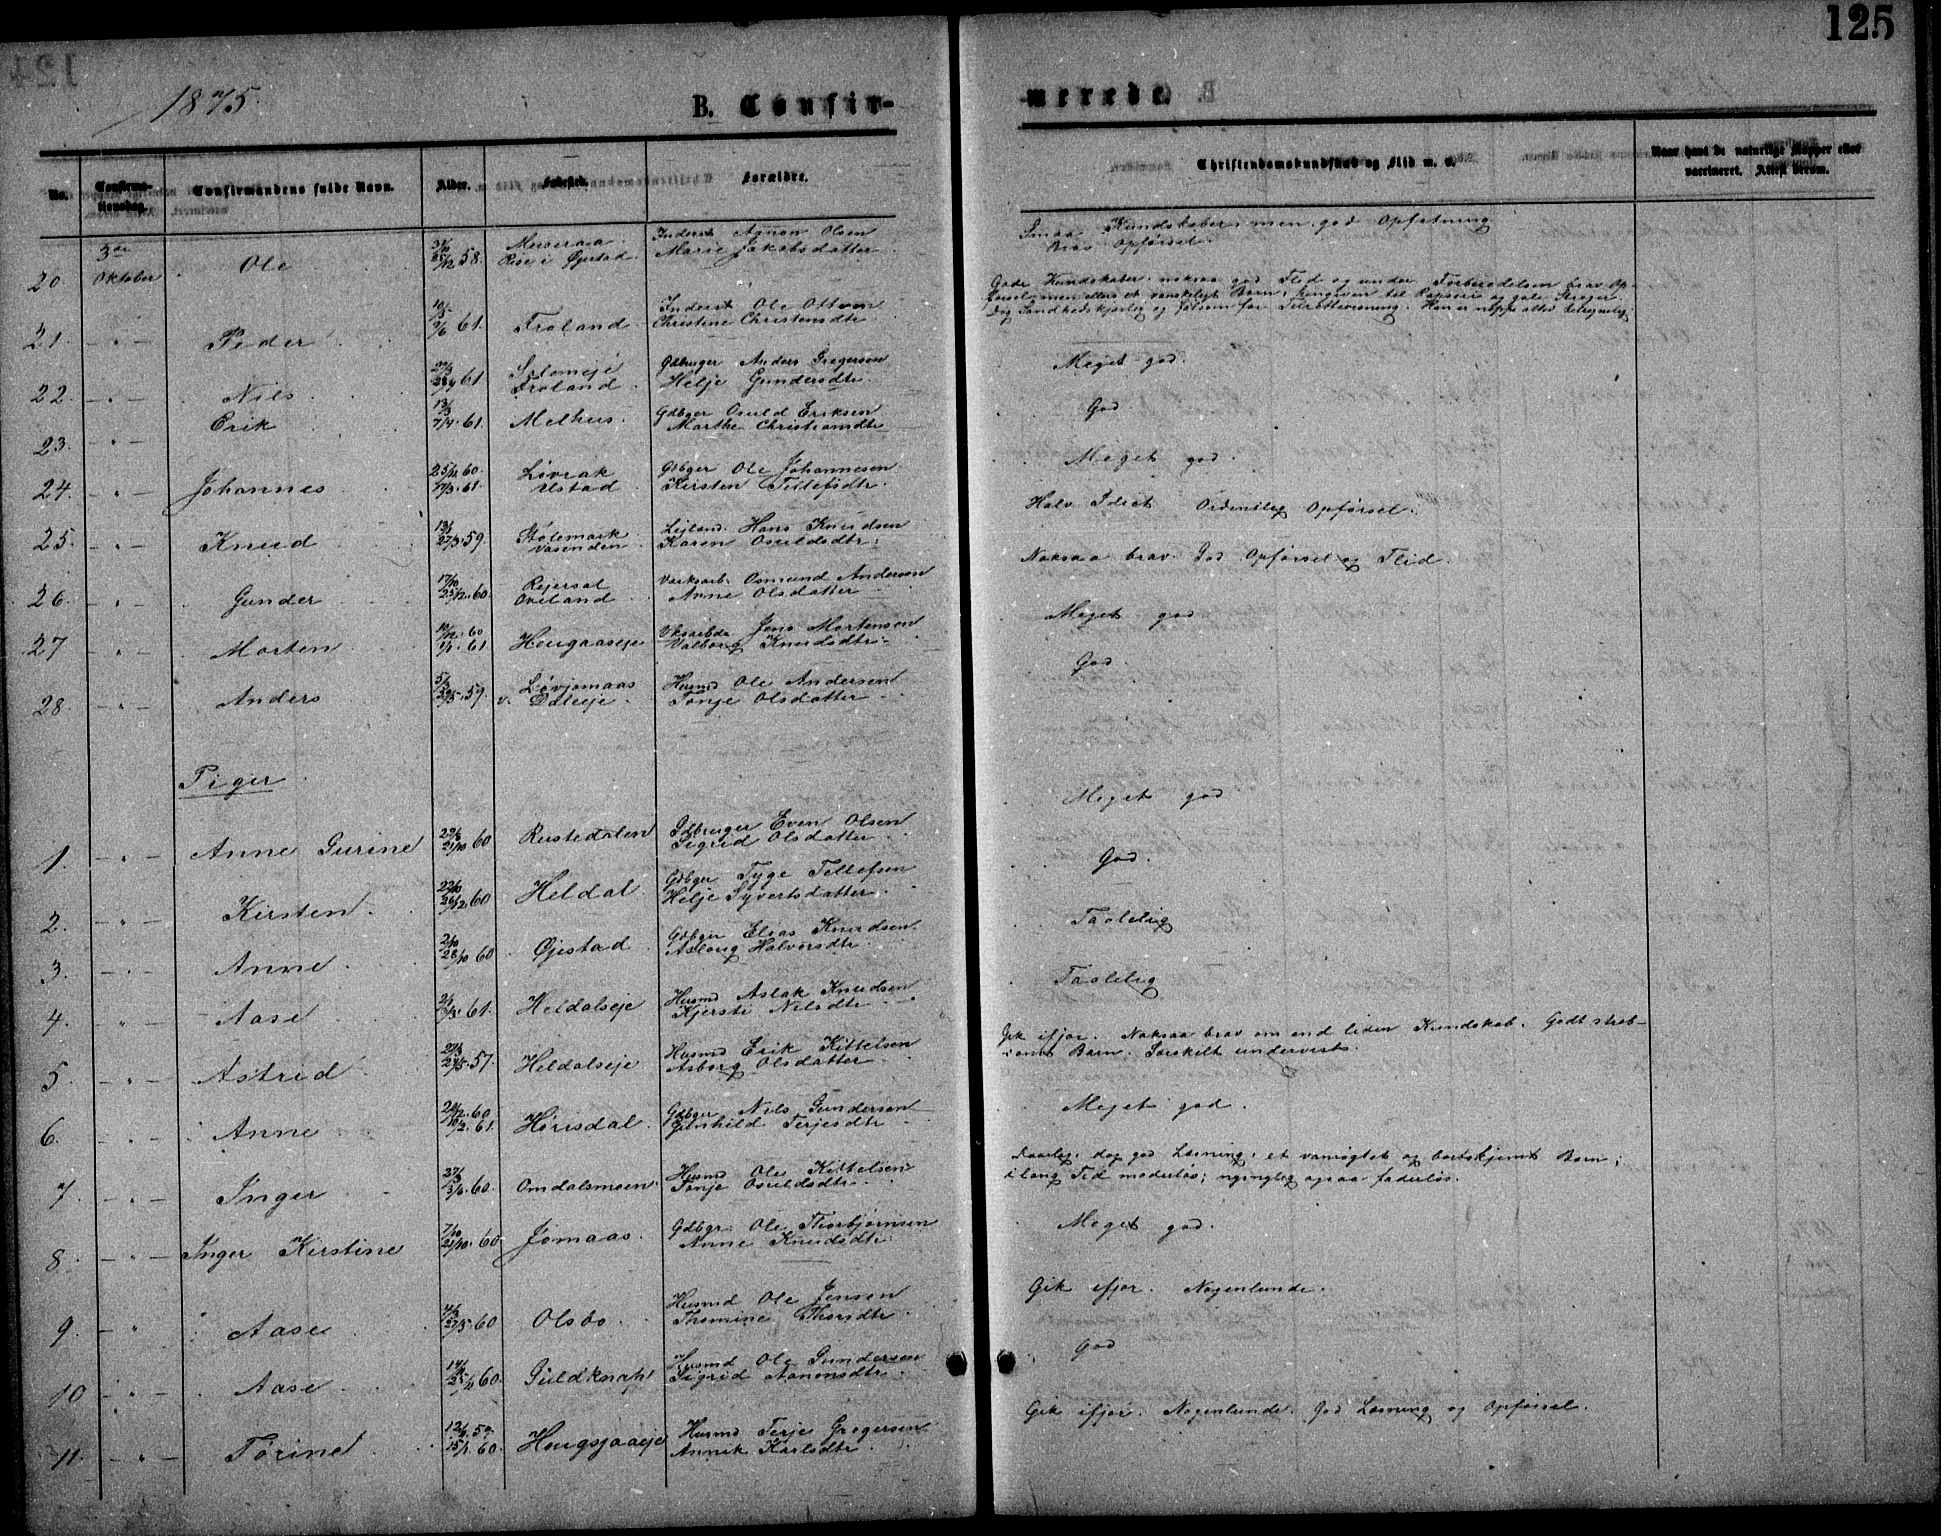 125
1875.
B. Confir-
merede.
No.
Confirma-
tionsdag.
Confirmandens fulde Navn.
Alder.
Fødested.
Forældre.
Christendomskundskab og Flid m. v.
Naar havt de naturlige Kopper eller
vaccineret. Attest herom.
20. 3die Oktober Ole 58. Rise i Øjestad Inderst Olsen
Marie Jakobsdatter
Smaa Kundskaber, men god Opfatning
Brav Opførsel.
21. - " - Peder 61. Froland Inderst Ole Ottesen
Christine Christensdtr
Gode Kundskaber. noksaa god Flid og under Forberedelsen brav Op-
førsel, men ellers et vanskeligt Barn, hengiven til og gale Streger.
Dog Sandhedskjærlig og følsom for Tilrettevisning. Han er neppe altid tilregnelig
22. - " - Nils 61 Froland Gdbruger Anders Gregersen
Helje Gundersdtr.
Meget god.
23. - " - Erik 7/4 61. Melhus. Gdbger Osuld Eriksen
Marthe Christiansdtr
God
24. - " - Johannes 60. 61. Løvrak
Ustad Gdbger Ole Johannesen
Kirsten Tellefsdtr.
Meget god.
25. - " - Knud 59. Stølemark
Vasenden Leiland. Hans Knudsen
Karen Osuldsdtr.
Halv Idiot Ordentlig Opførsel.
26. - " - Gunder 17/10 25/12 60. Rejersøl
Oveland Værksarb. Osmund Andersen
Anne Olsdatter
Noksaa brav. God Opførsel og Flid.
27 - " - Morten 60 61 Hougaaseje Jens Mortensen
Valborg Knudsdtr.
Meget god
28. - " - Anders 59. v. Løvjomaas
Daleeje. Husmd Ole Andersen
Tonje Olsdatter
God.
Piger
1. - " - Anne Gurine 21/10 60 Rustedalen Gdbruger Even Olsen
Sigrid Olsdatter
Meget god
2. - " - Kirsten. 26/12 60 Heldal. Gdbger Tyge Tellefsen
Helje Syvertsdatter
God.
3. - " - Anne 2/10 28/10 60 Øjestad Gdbger Elias Knudsen
Aslaug Halvorsdtr.
Taalelig
4. - " - Aase 61. Heldalseje Husmd Aslak Knudsen
Kjersti Nilsdtr
Taalelig
5 - " - Astrid 57. Heldalseje Husmd Erik Kittelsen
Asborg Olsdatter
Gik ifjor. Noksaa brav om end liden Kundskab. Godt stræb-
somt Barn. Særskilt undervist.
6. - " - Anne 60 61. Hørisdal. Gdbger Nils Gundersen
Gunhild Terjesdtr
Meget god.
7. - " - Inger 60. Omdalsmoen. Husmd Ole Kittelsen
Tonje Osuldsdtr.
Daarlig, dog god Læsning, et vanrøgtet og bortskjemt Barn;
i lang Tid moderløs; nyinglig ogsaa faderløs.
8. - " - Inger Kirstine 7/10 21/10 60 Jomaas. Gdbgr. Ole Thorbjørnsen
Anne Knudsdtr
Meget god.
9. - " Aase 60 Olsbo. Husmd Ole Jensen
Thomine Thorsdtr
Gik ifjor. Nogenlunde.
10 - " - Aase 60. Guldknap Husmd Ole Gundersen
Sigrid Aanonsdtr
God
11. - " - Torine 59. 60. Hougsjaaeje Husmd Terje Gregersen
Annik Karlsdtr
Gik ifjor. Nogenlunde. God Læsning og Opførsel.